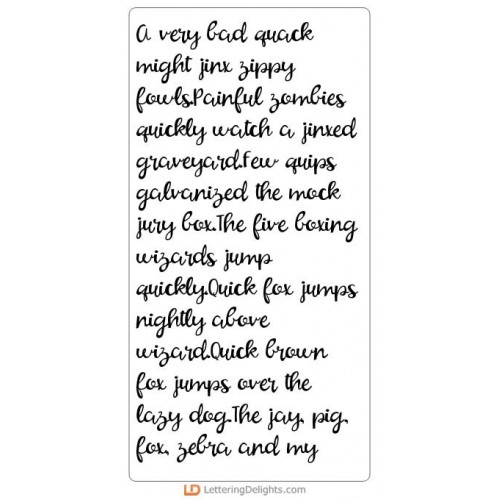 A very bad quack
might jinx zippy
fowls.Painful zombies
quickly watch a jinxed
graveyard.Few quips
galvanized the mock
jury box.The five boxing
wizards jump
quickly.Quick fox jumps
nightly above
wizard.Quick brown
fox jumps over the
lazy dog.The jay, pig,
fox, zebra and my
LD LetteringDelights.com